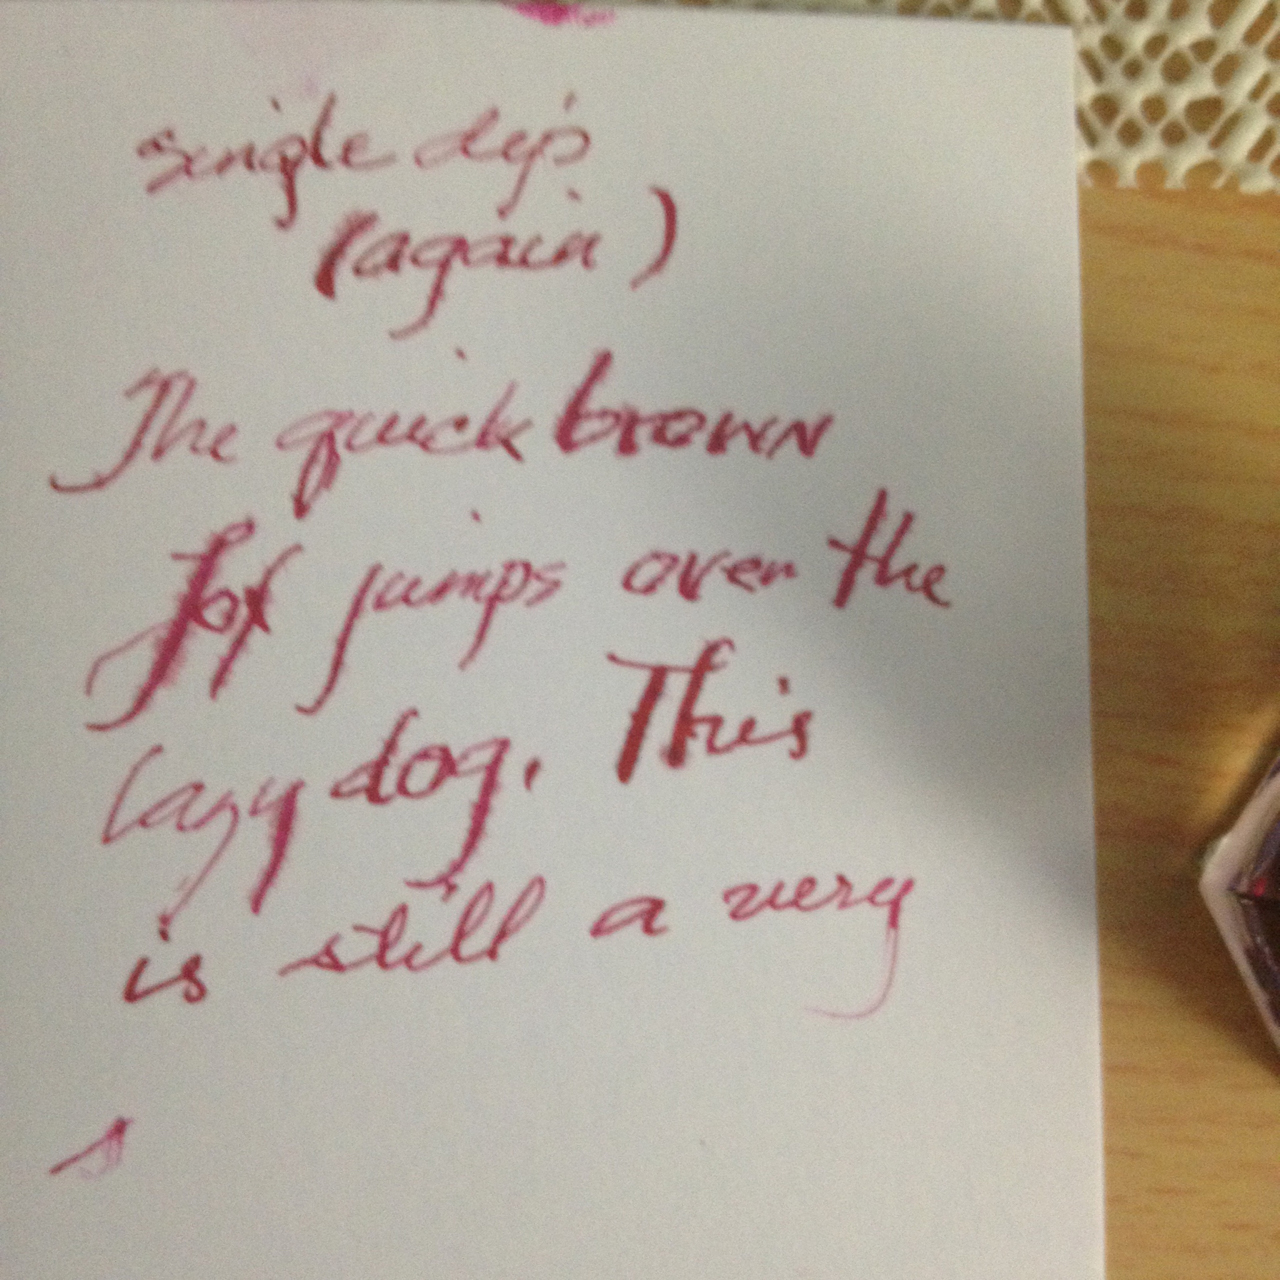 single dip
(again)
The quick brown
fox jumps over the
lazy dog. This
is still a very
s